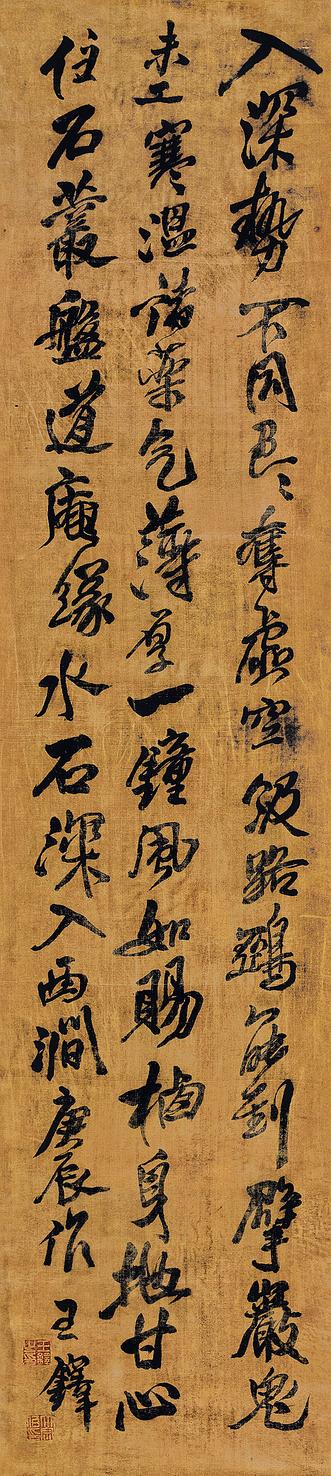 入深勢不同奪虛空級路能到擘巖鬼
未工寒溫諸藥氣薄厚一鐘風如賜栖身地甘心
住石叢盤道庵緣水石深入西澗庚辰作王鐸